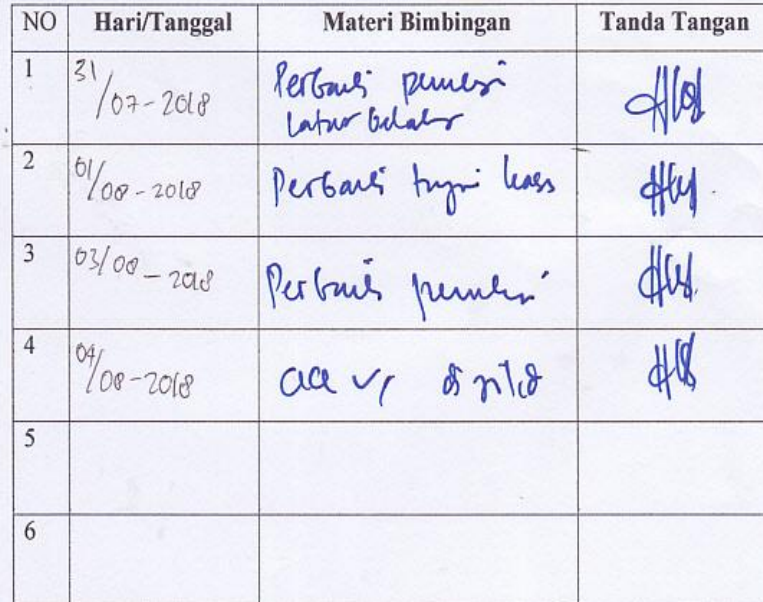 NO Hari/Tanggal Materi Bimbingan Tanda Tangan
1 31/07-2018 Perbaiki
latar belakang
2 01/08-2018 Perbaiki kasus
3 03/08-2018 Perbaiki
4 04/08-2018 acc
5
6